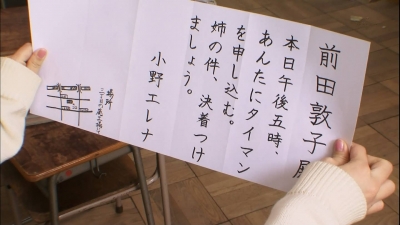 前田敦子殿
本日午後五時、
あんたにタイマン
を申し込む。
姉の件、決着つけ
ましょう。
小野エレナ
場所